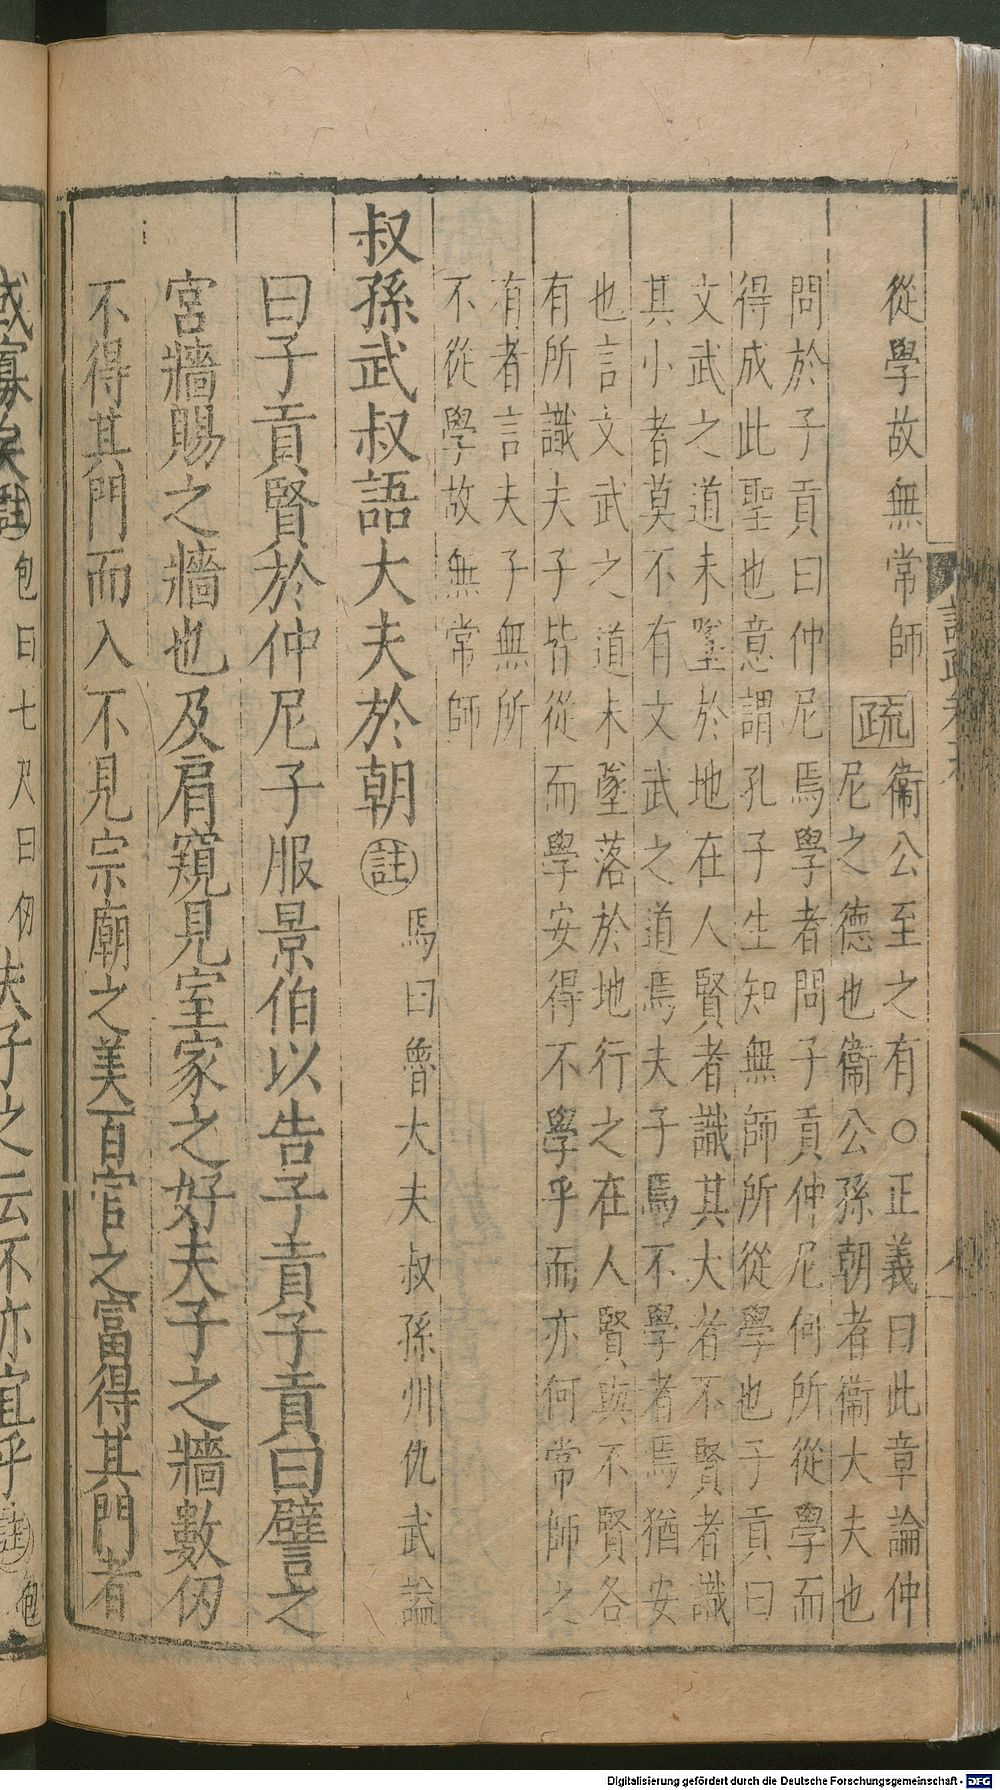 從學故無常師疏衞公至之有○正義曰此章論仲
尼之德也衞公孫朝者衞大夫也
問於子貢曰仲尼焉學者問子貢仲尼何所從學而
得成此聖也意謂孔子生知無師所從學也子貢曰
文武之道未墜於地在人賢者識其大者不賢者識
其小者莫不有文武之道焉夫子焉不學者焉猶安
也言文武之道未墜落於地行之在人賢與不賢各
有所識夫子皆從而學安得不學乎而亦何常師之
有者言夫子無所
不從學故無常師
叔孫武叔語大夫於朝註馬曰魯大夫叔孫州仇武謚
曰子貢賢於仲尼子服景伯以告子貢子貢曰譬之
宮牆賜之牆也及肩窺見室家之好夫子之牆數仞
不得其門而入不見宗廟之美百官之富得其門者
或寡矣註包曰七尺曰仞夫子之云不亦宜乎註包
Digitalisierung gefördert durch die Deutsche Forschungsgemeinschaft - DFG